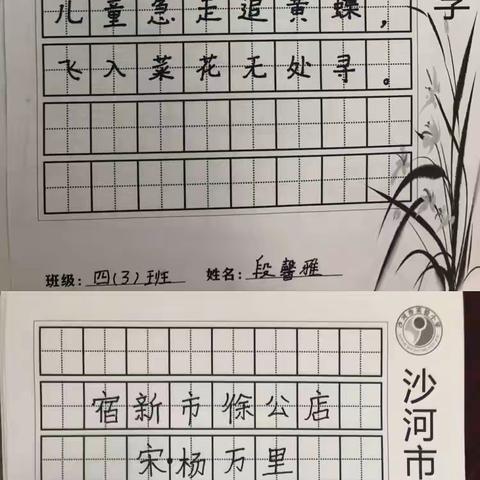 儿童急走追黄蝶，
飞入菜花无处寻。
子
班级：四(3)班 姓名：段馨雅
宿新市徐公店
宋·杨万里
沙河市